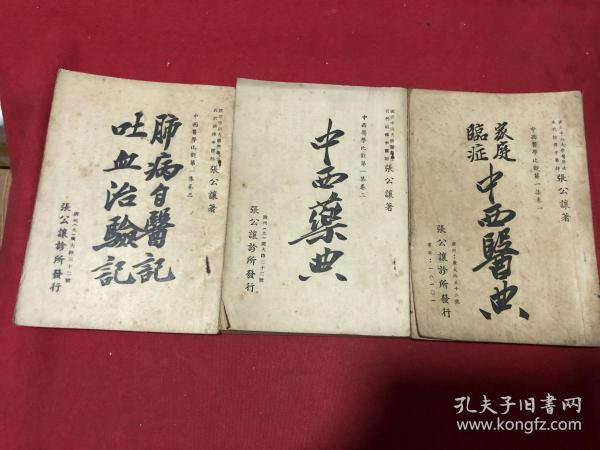 家庭
臨症
中西醫典
中西醫學比觀第一集卷一
張公讓著
張公讓診所發行
中西藥典
中西醫學比觀第一集卷二
張公讓著
張公讓診所發行
肺病自醫記
吐血治驗記
中西醫學比觀第一集卷三
張公讓著
張公讓診所發行
孔夫子旧书网
www.kongfz.com